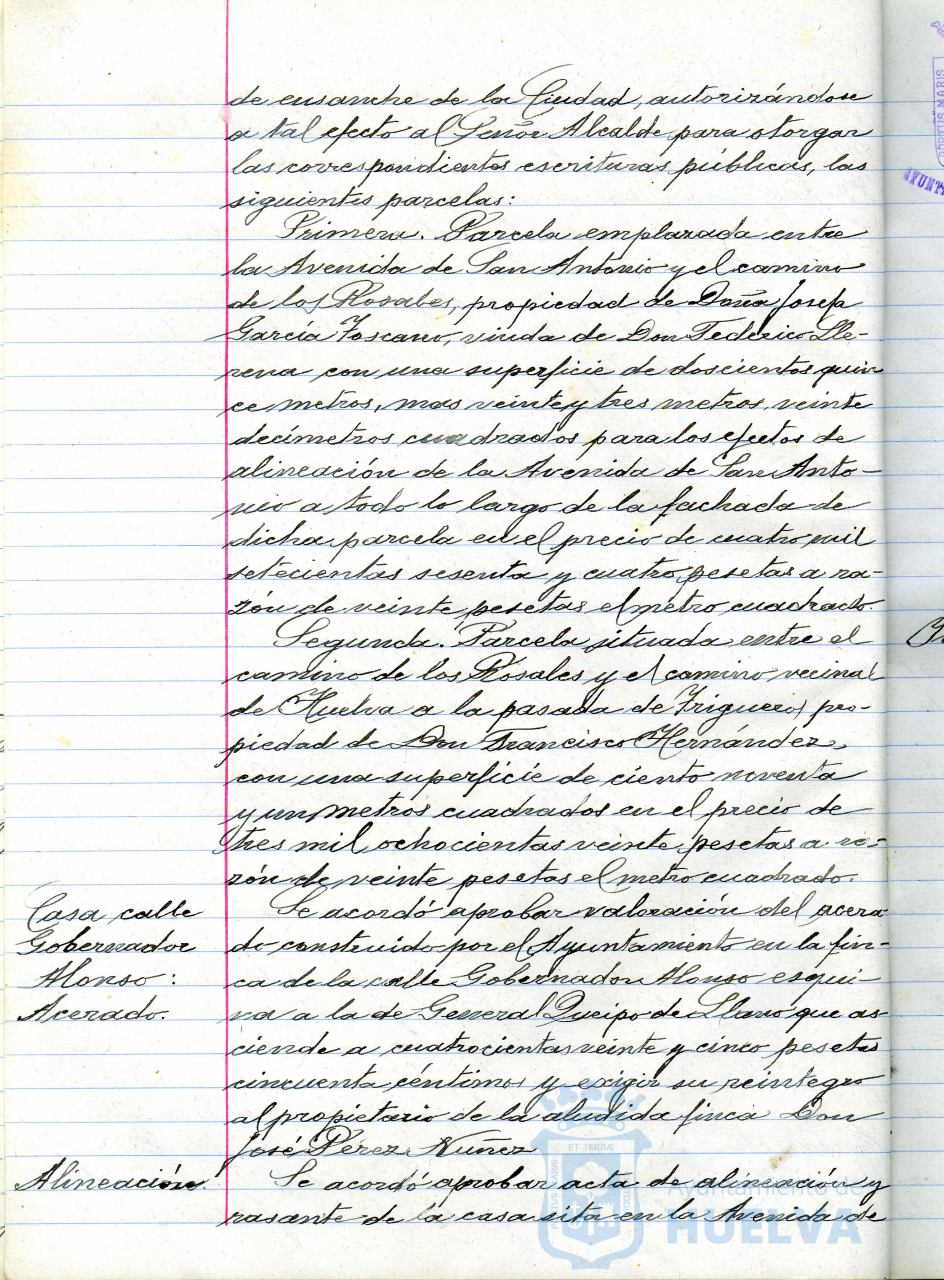 de ensanche de la Ciudad, autorizándose
a tal efecto al Señor Alcalde para otorgar
las correspondientes escrituras públicas, las
siguientes parcelas:
Primera. Parcela emplazada entre
la Avenida de San Antonio y el camino
de los Rosales, propiedad de Doña Josefa
García Toscano, viuda de Don Federico Lle-
rena con una superficie de doscientos quin-
ce metros, mas veinte y tres metros, veinte
decímetros cuadrados para los efectos de
alineación de la Avenida de San Anto-
nio a todo lo largo de la fachada de
dicha parcela en el precio de cuatro mil
setecientas sesenta y cuatro pesetas a ra-
zón de veinte pesetas el metro cuadrado.
Segunda. Parcela situada entre el
camino de los Rosales y el camino vecinal
de Huelva a la pasada de Trigueros, pro-
piedad de Don Francisco Hernández,
con una superficie de ciento noventa
y un metros cuadrados en el precio de
tres mil ochocientas veinte pesetas a ra-
zón de veinte pesetas el metro cuadrado.
Casa calle
Gobernador
Alonso:
Acerado.
Se acordó aprobar valoración del acera-
do construido por el Ayuntamiento en la fin-
ca de la calle Gobernador Alonso esqui-
na a la de General Queipo de Llano que as-
ciende a cuatrocientas veinte y cinco pesetas
cincuenta céntimos y exigir su reintegro
al propietario de la aludida finca Don
José Pérez Nuñez
Alineación.
Se acordó aprobar acta de alineación y
rasante de la casa sita en la Avenida de
Ayuntamiento de
HUELVA